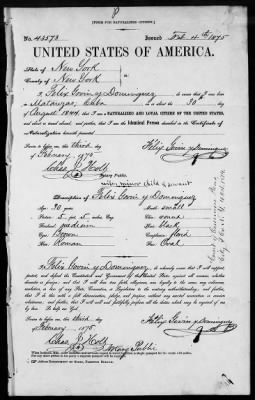 [FORM FOR NATURALIZED CITIZEN.]
No. 43573 Issued Feb. 4th 1875
UNITED STATES OF AMERICA.
State of New York
County of New York
I, Felix Govin y Dominguez, do swear that I was born
in Matanzas, Cuba on the 30 day
of August 1844, that I am a NATURALIZED AND LOYAL CITIZEN OF THE UNITED STATES,
and about to travel abroad, and further, that I am the Identical Person described in the Certificate of
Naturalization herewith presented.
Sworn to before me this third day
of February 1875 Felix Govin y Dominguez
Chas. J. Holt
Notary Public
wife, minor child & servant
Description of Felix Govin y Dominguez
Age: 30 years Mouth: small
Stature: 5 feet 5 inches Chin: round
Forehead: medium Hair: black
Eyes: Brown Complexion: florid
Nose: Roman Face: Oval
I, Felix Govin y Dominguez, do solemnly swear that I will support,
protect, and defend the Constitution and Government of the United States against all enemies, whether
domestic or foreign; and that I will bear true faith, allegiance, and loyalty to the same, any ordinance,
resolution, or law of any State, Convention, or Legislature to the contrary notwithstanding; and further,
that I do this with a full determination, pledge, and purpose, without any mental reservation or evasion
whatsoever; and further, that I will well and faithfully perform all the duties which may be required of me
by law. So help me God.
Sworn to before me this third day
of February 1875. Felix Govin y Dominguez
Chas. J. Holt
Notary Public